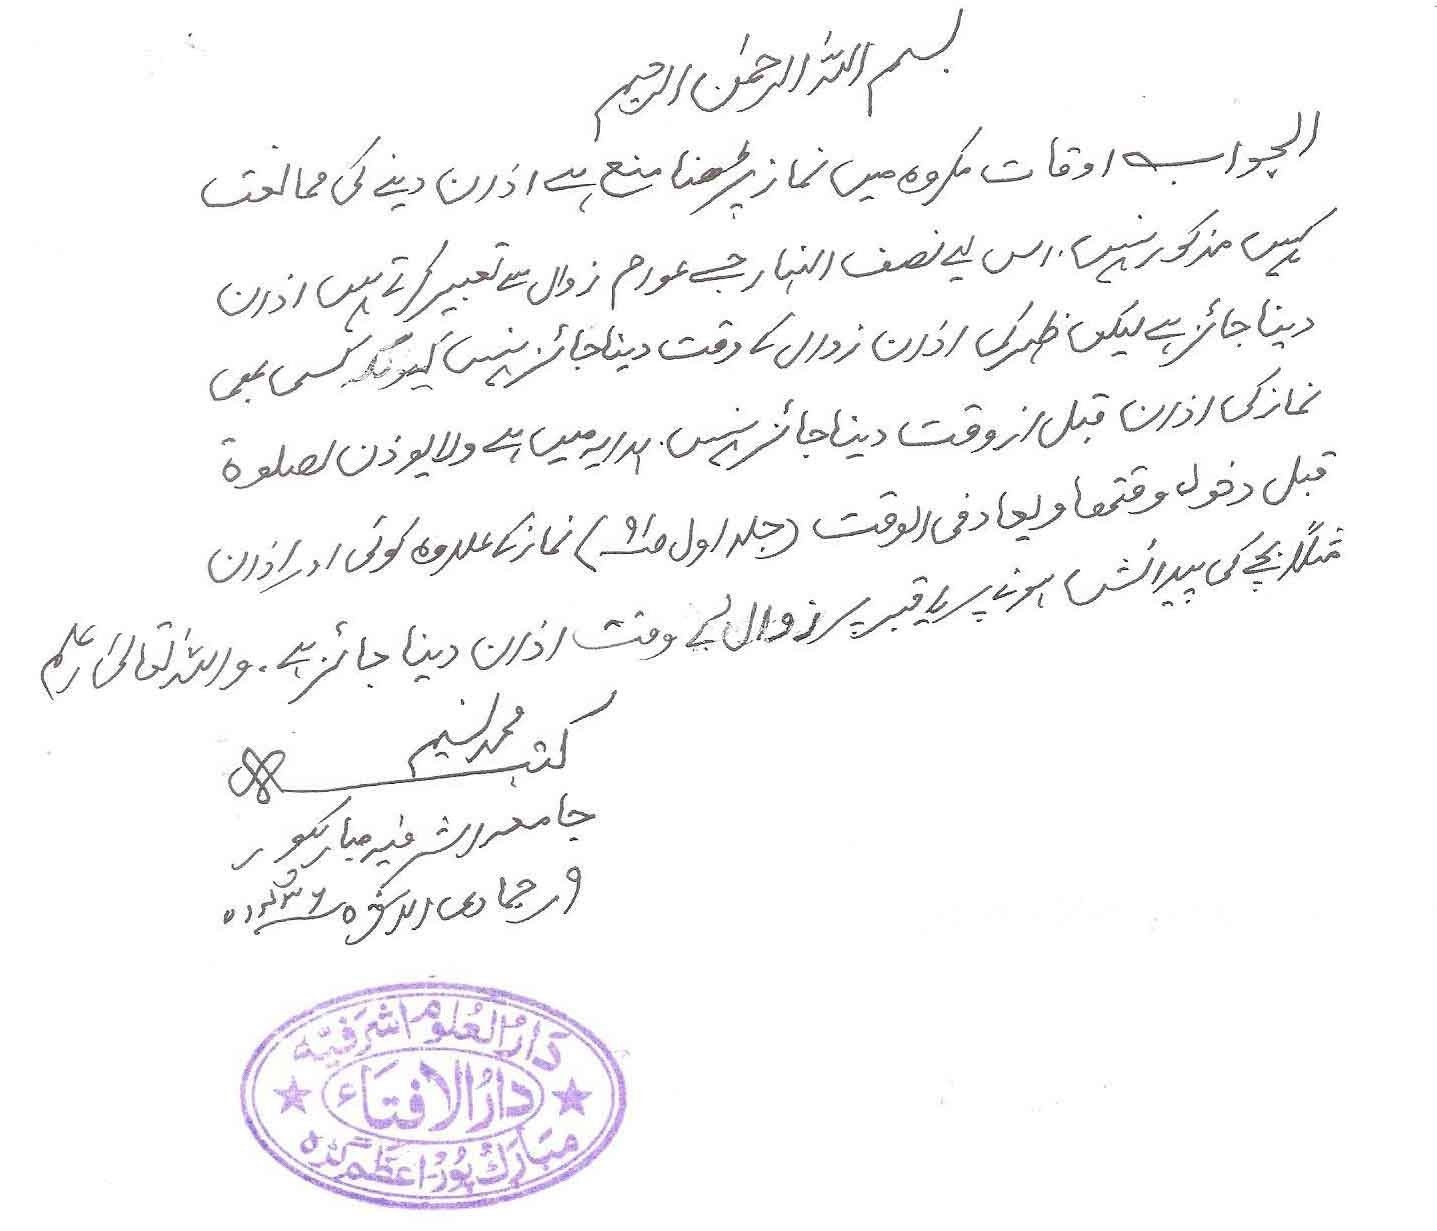 بسم اللہ الرحمٰن الرحیم
الجواب اوقات مکروہ میں نماز پڑھنا منع ہے اذان دینے کی ممانعت
کہیں مذکور نہیں۔ اس لیے نصف النہار جسے عوام زوال سے تعبیر کرتے ہیں اذان
دینا جائز ہے لیکن ظہر کی اذان زوال کے وقت دینا جائز نہیں کیونکہ کسی بھی
نماز کی اذان قبل از وقت دینا جائز نہیں۔ ہدایہ میں ہے ولا یوذن لصلوة
قبل دخول وقتھا ویعاد فی الوقت (جلد اول ص۹۱) نماز کے علاوہ کوئی اور اذان
مثلاً بچے کی پیدائش ہونے پر یا قبر پر زوال کے وقت اذان دینا جائز ہے۔ واللہ تعالیٰ اعلم
محمد نسیم
کتبہ
جامعہ اشرفیہ مبارکپور
۹ جمادی الآخرہ ۱۴۳۶ھ
دَارُ العُلوم اشرَفیّہ
دَارُ الافتَاء
مُبَارَک پُور۔ اعظم گڑھ